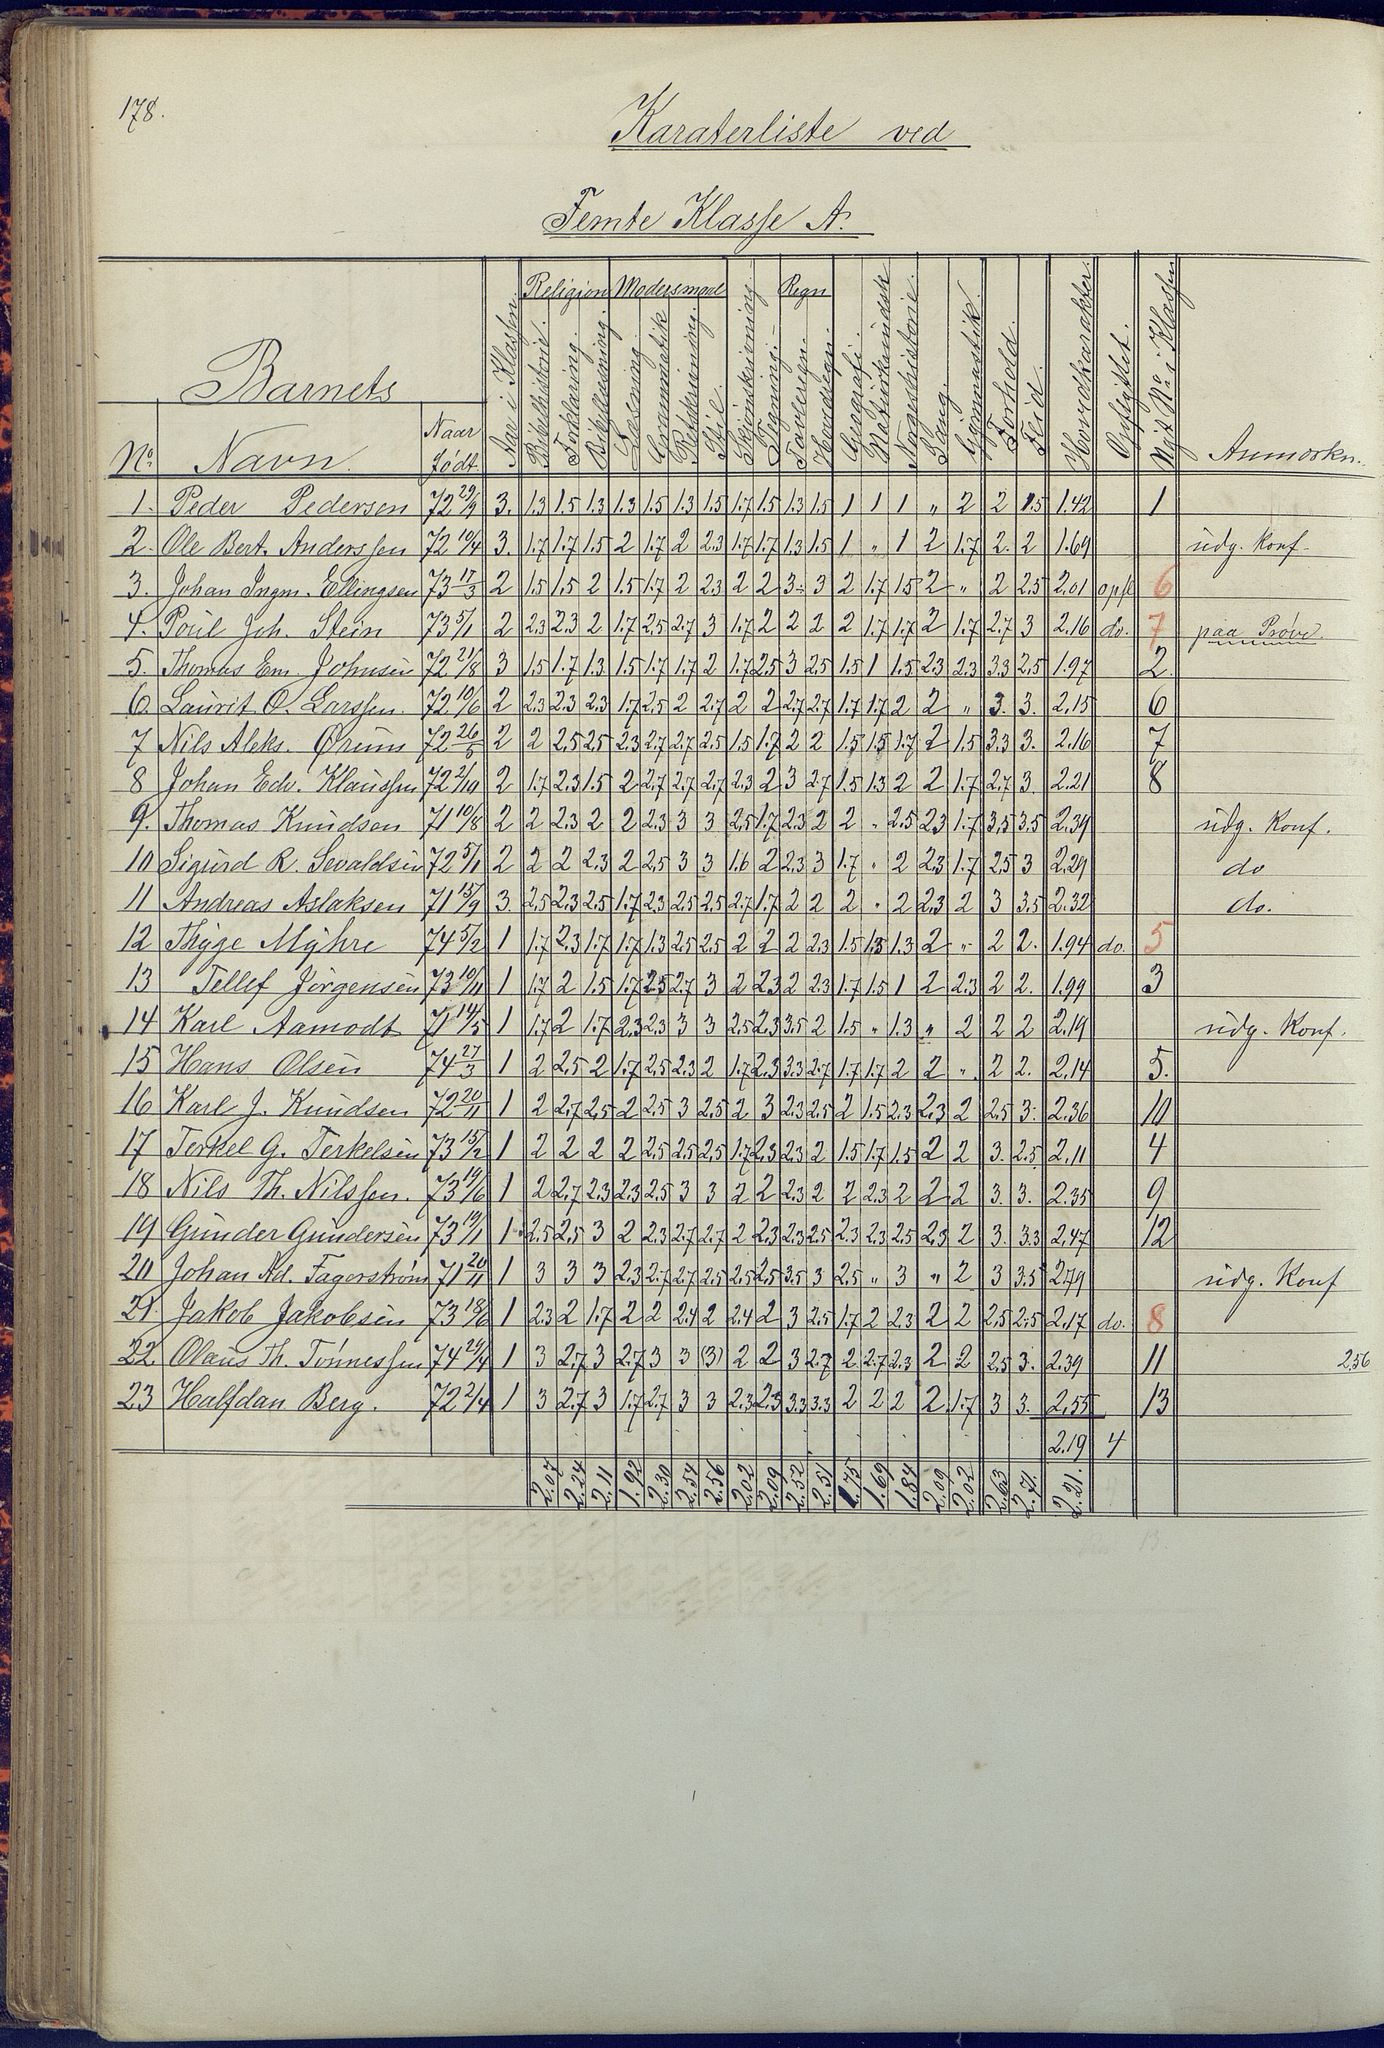 178.
Karaterliste ved
Femte Klasse A.
Barnets
No. Navn. Naar født. Aar i Klassen. Religion Bibelhistorie. Forklaring. Bibellæsning. Modersmaal Læsning. Grammatik Retskrivning. Stil. Skjönskrivning. Tegning. Regn Tavleregn. Hovedregn. Geografi. Naturkundsk. Norgeshistorie. Sang. Gymnastik. Forhold. Flid. Hovedkarakter. Opflyttet. Nyt No. i Klassen Anmærkn.
1. Peder Pedersen 72 29/9 3. 1.3 1.5 1.3 1.3 1.5 1.3 1.5 1.7 1.5 1.3 1.5 1 1 1 " 2 2 1.5 1.42 1
2. Ole Bert. Anderssen 72 10/4 3. 1.7 1.7 1.5 2 1.7 2 2.3 1.7 1.7 1.3 1.5 1 " 1 2 1.7 2. 2 1.69 udg. Konf.
3. Johan Ingm. Ellingsen 73 17/3 2 1.5 1.5 2 1.5 1.7 2 2.3 2 2 3. 3 2 1.7 1.5 2 " 2 2.5 2.01 opfl 6
4. Poul Joh. Stein 73 5/1 2 2.3 2.3 2 1.7 2.5 2.7 3 1.7 2 2 2 2 1.7 1.7 2 1.7 2.7 3 2.16 do. 7 paa Prøve.
5. Thomas Em Johnsen 72 21/8 3 1.5 1.7 1.3 1.5 1.7 1.7 2 1.7 2.5 3 2.5 1.5 1 1.5 2.3 2.3 3.3 2.5 1.97 2.
6. Laurit O. Larssen. 72 10/6 2 2.3 2.3 2.3 1.7 2.5 2 2.7 2 2 2.7 2.7 1.7 1.7 2 2 " 3. 3. 2.15 6
7 Nils Aleks. Ørum 72 26/5 2 2 2.5 2.5 2.3 2.7 2.7 2.5 1.5 1.7 2 2 1.5 1.5 1.7 2 1.5 3.3 3. 2.16 7
8 Johan Edv. Klaussen 72 2/10 2 1.7 2.3 1.5 2 2.7 2.7 2.7 2.3 2 3 2.7 1.5 1.3 2 2 1.7 2.7 3. 2.21 8
9. Thomas Knudsen 71 10/8 2 2 2.3 2 2 2.3 3 3 2.5 1.7 2.3 2 2 " 2.5 2.3 1.7 3.5 3.5 2.39 udg. Konf.
10 Sigurd R. Sevaldsen 72 5/1 2 2 2 2.3 2 2.5 3 3 1.6 2 2.3 3 1.7 " 2 2.3 1.7 2.5 3 2.29 do
11 Andreas Aslaksen 71 15/9 3. 2.5 2.3 2.5 1.7 2.3 2.5 2.5 2.7 1.7 2 2 2 " 2 2.3 2 3 3.5 2.32 do.
12 Thyge Myhre 74 5/2 1 1.7 2.3 1.7 1.7 1.3 2.5 2.5 2 2 2 2.3 1.5 1.3 1.3 2 " 2 2. 1.94 do. 5
13 Tellef Jörgensen 73 10/11 1 1.7 2 1.5 1.7 2.5 2.7 3 2 2.3 2 2.3 1.7 1.5 1 2 2.3 2 2. 1.99 3
14 Karl Aamodt 71 14/5 1 1.7 2 1.7 2.3 2.3 3 3 2.5 2.3 3.5 2 1.5 " 1.3 " 2 2 2 2.19 udg. Konf.
15 Hans Olsen 74 27/3 1 2 2.5 2 1.7 2.5 2.3 2 1.7 2.3 3.3 2.7 1.7 1.7 2 2 " 2 2. 2.14 5.
16 Karl J. Knudsen 72 20/11 1 2 2.7 2.5 2 2.5 3 2.5 2 3 2.3 2.5 2 1.5 2.3 2.3 2 2.5 3. 2.36 10
17 Terkel G. Terkelsen 73 15/2 1 2 2 2 2 2.5 2.5 2.5 1.7 2.3 2.3 2 1.5 1.7 1.5 2 2 3. 2.5 2.11 4
18 Nils Th. Nilssen. 73 19/6 1 2 2.7 2.3 2.3 2.5 3 3 2 2 2.3 2 2 2.3 2 2 2 3. 3. 2.35 9
19 Gunder Gundersen 73 19/1 1 2.5 2.5 3 2 2.3 2.7 2.7 2 2.3 2.3 2.5 2.3 2.3 2.5 2.3 2 3. 3.3 2.47 12
20 Johan Ad. Fagerstrøm 71 20/11 1 3 3 3 2.3 2.7 2.7 2.5 2.5 2.5 3.5 3 2.5 " 3 " 2 3 3.5 2.79 udg. Konf
21. Jakob Jakobsen 73 18/6 1 2.3 2 1.7 2 2 2.4 2 2.4 2 3 2.5 1.7 2 2.3 2 2 2.5 2.5 2.17 do. 8
22. Olaus Th. Tönnessen 74 29/4 1 3 2.7 3 2.7 3 3 (3) 2 2 3 2.7 2. 2.7 2.3 2 2 2.5 3. 2.39 11 2.56
23 Halfdan Berg. 72 2/4 1 3 2.7 3 1.7 2.7 3 3 2.3 2.3 3.3 3.3 2 2 2 2 1.7 3 3. 2.55 13
2.19 4
2.07 2.24 2.11 1.92 2.30 2.54 2.56 2.02 2.09 2.52 2.51 1.75 1.69 1.84 2.09 2.02 2.63 2.71 2.21.